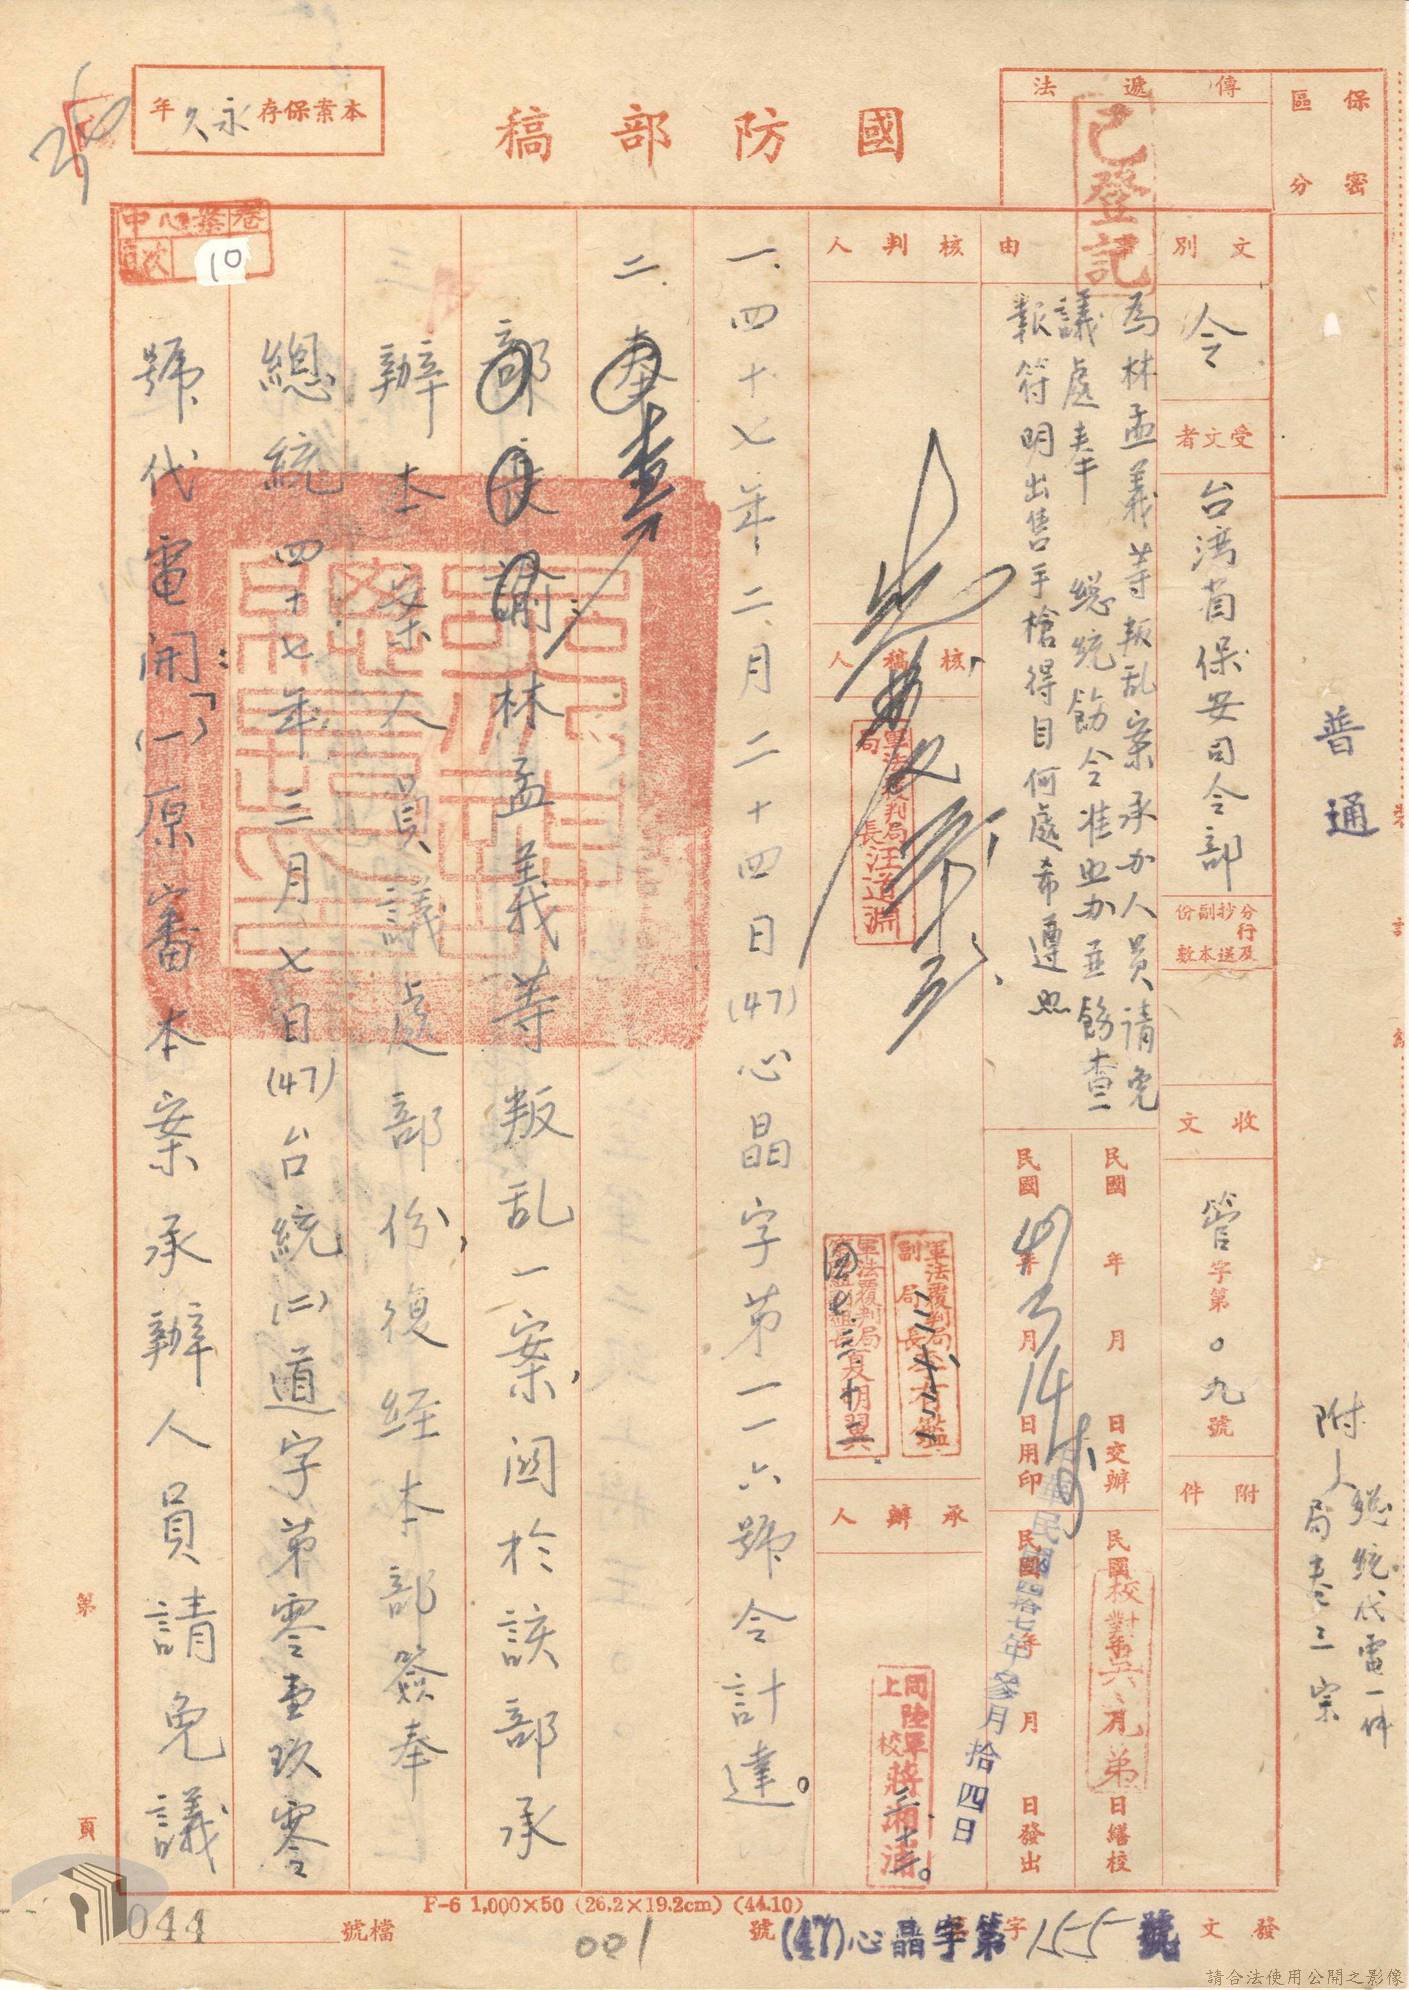 國防部稿
本案保存永久年
保密區分
普通
傳遞法
已登記
文別
令
受文者
台灣省保安司令部
分行及抄送副本份數
收文
管字第〇九號
附件
附
總統代電一件
局卷三宗
由
為林孟義等叛乱案承办人員請免
議處奉 總統飭令准照办並飭查
報符明出售手槍得自何處希遵照
民國 年 月 日交辦
民國47年3月14日用印
民國 年 月 日繕校
民國 年 月 日發出
中華民國四拾七年參月拾四日
核判人
核稿人
軍法覆判局局長汪道淵
軍法覆判局副局長
軍法覆判局
承辦人
同陸軍上校蔣湘浦
一、四十七年二月二十四日(47)心晶字第一一六號令計達。
二、奉查
部長諭林孟義等叛乱一案,関於該部承
辦本案人員議處部份,復経本部簽奉
總統四十七年三月七日(47)台統(二)道字第零壹玖零
號代電開:「(一)原審本案承辦人員請免議
中心案卷
頁次
10
第 頁
F-6 1,000×50 (26.2×19.2cm) (44.10)
檔號
044
001
發文 字第 號
(47)心晶字第155號
請合法使用公開之影像